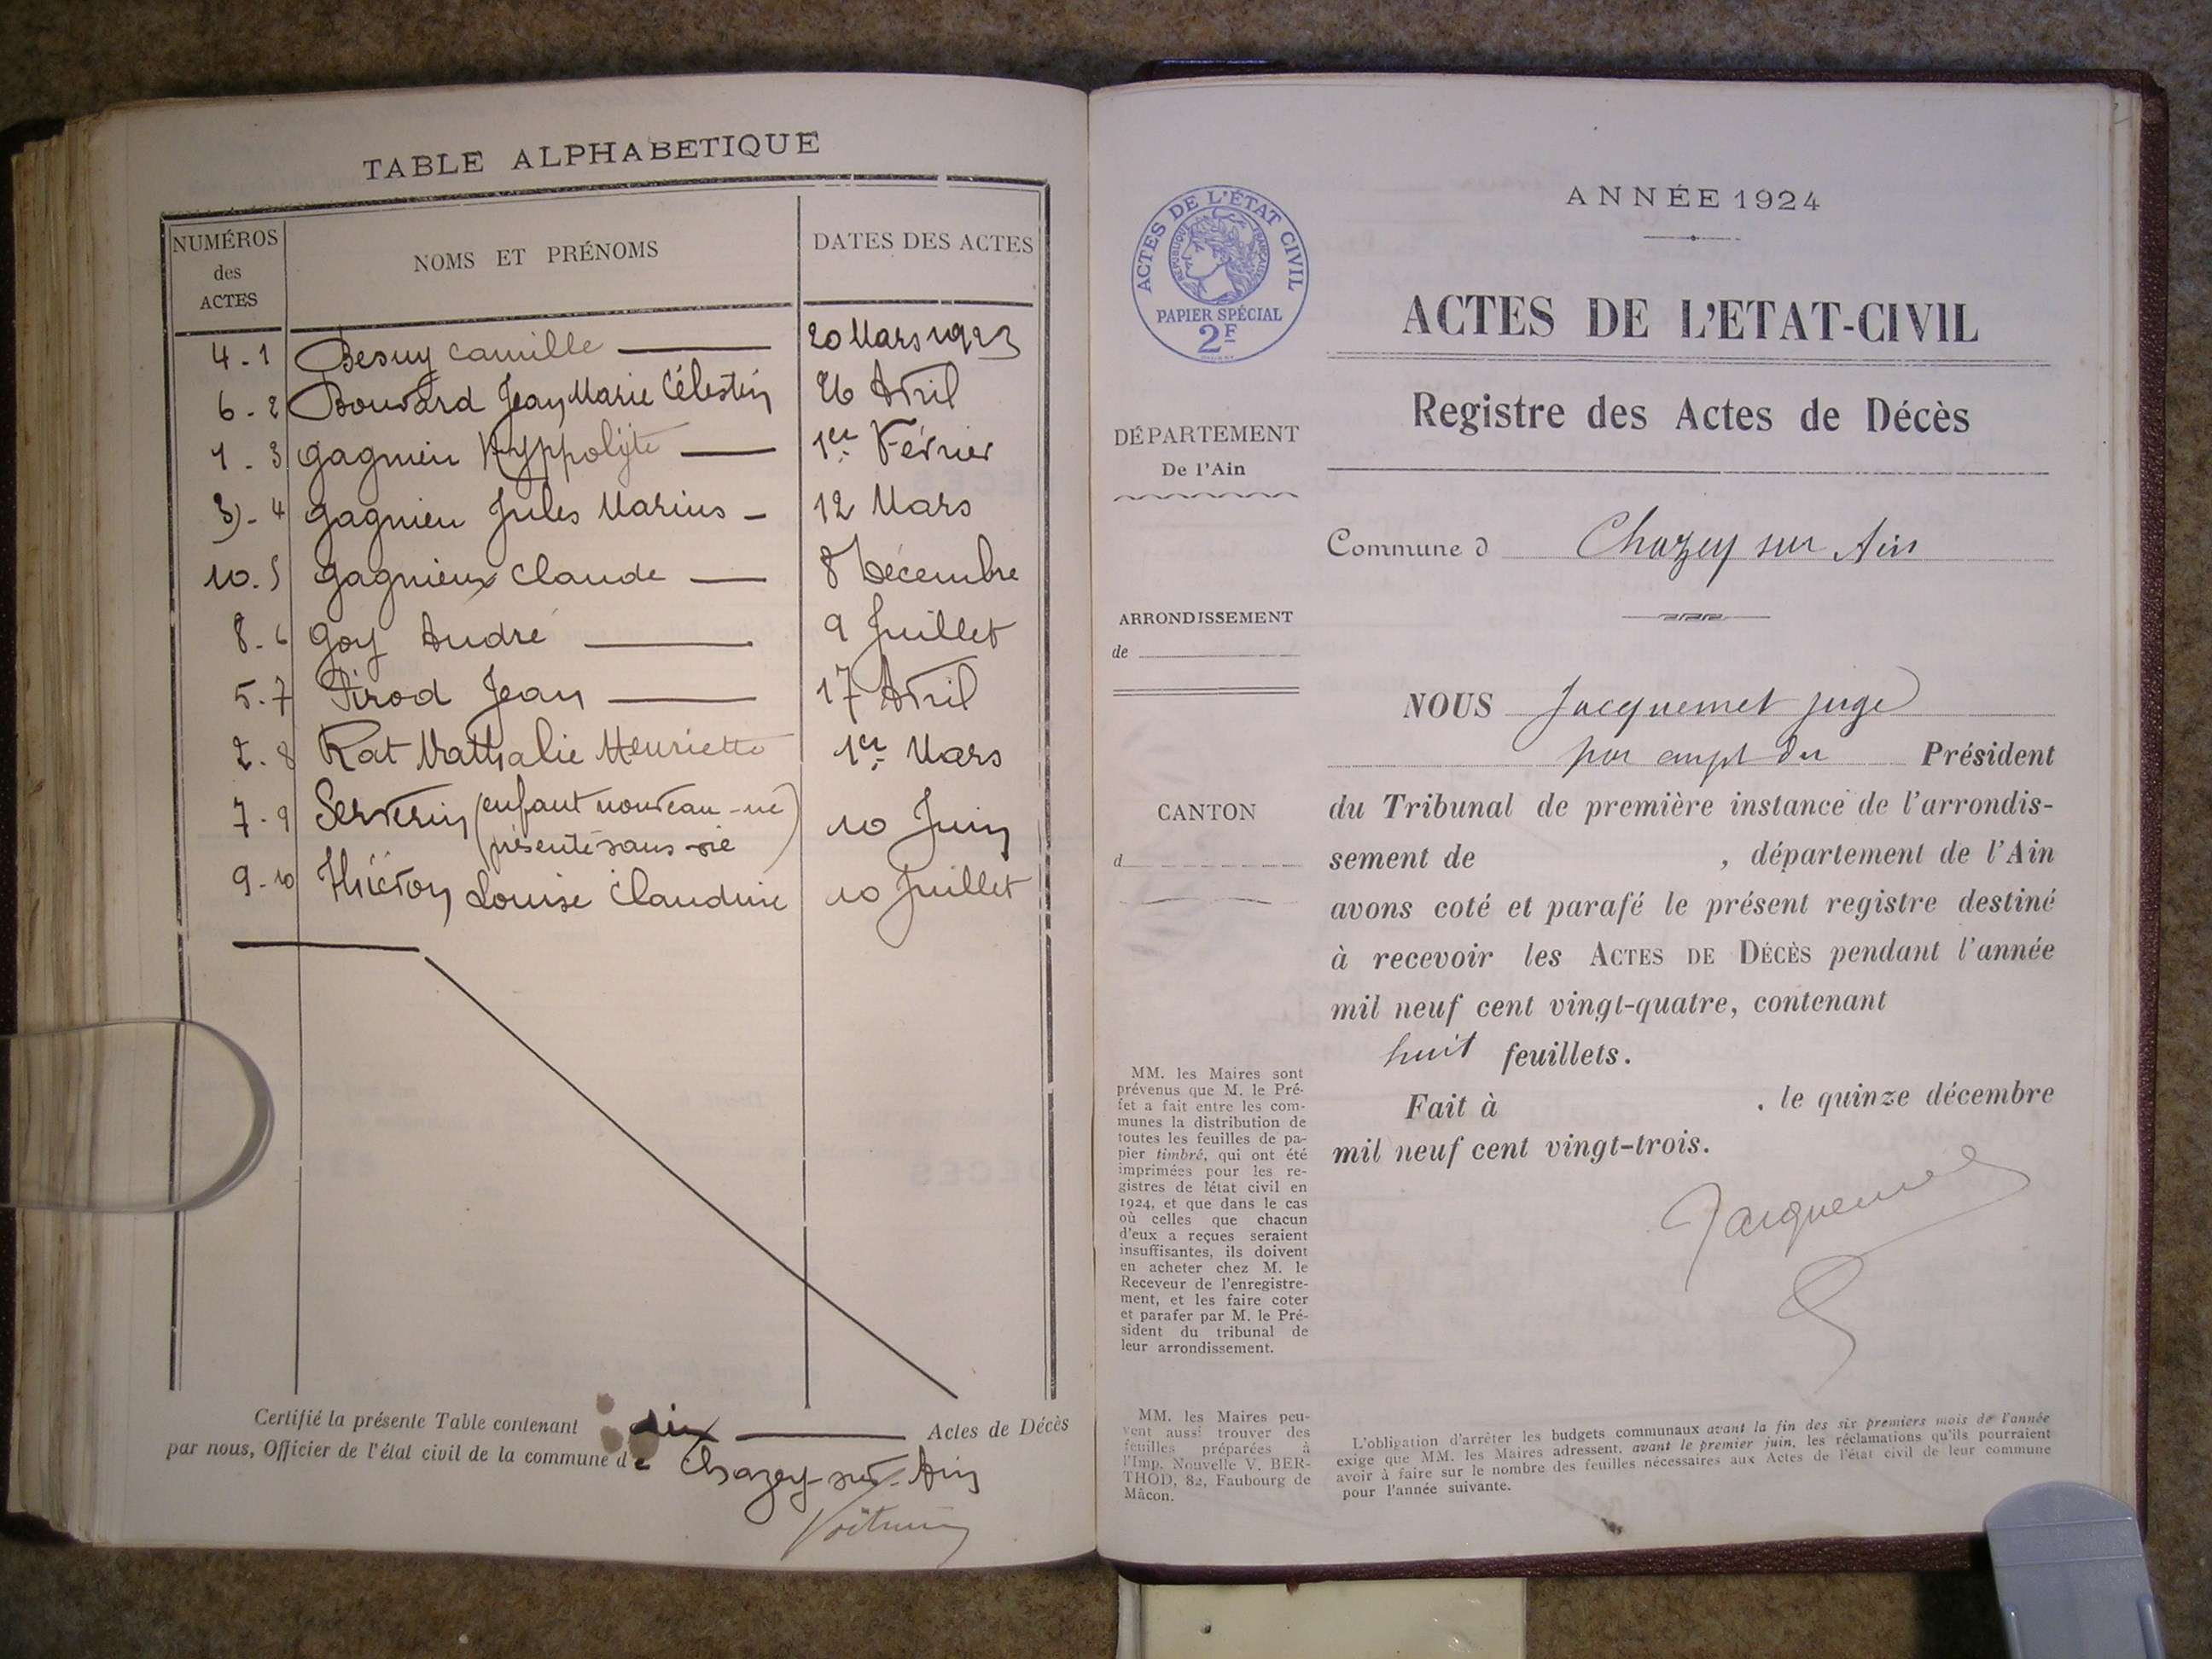 TABLE ALPHABETIQUE
NUMÉROS des ACTES
NOMS ET PRÉNOMS
DATES DES ACTES
4-1 Besuy Camille 20 Mars 1923
6-2 Bouvard Jean Marie Célestin 26 Avril
1-3 Gagnieu Hyppolyte 1er Février
3)-4 Gagnieu Jules Marius 12 Mars
10.5 Gagnieux Claude 8 Décembre
8-6 Goy André 9 Juillet
5-7 Pirod Jean 17 Avril
2-8 Rat Nathalie Henriette 1er Mars
7-9 Serverin (enfant nouveau-né
présenté sans vie) 10 Juin
9-10 Louise Claudine 10 Juillet
Certifié la présente Table contenant dix Actes de Décès
par nous, Officier de l'état civil de la commune de Chazey-sur-Ain
ACTES DE L'ÉTAT CIVIL
RÉPUBLIQUE FRANÇAISE
PAPIER SPÉCIAL
2F
DÉPARTEMENT
De l'Ain
ARRONDISSEMENT
de
CANTON
d
MM. les Maires sont
prévenus que M. le Pré-
fet a fait entre les com-
munes la distribution de
toutes les feuilles de pa-
pier timbré, qui ont été
imprimées pour les re-
gistres de létat civil en
1924, et que dans le cas
où celles que chacun
d'eux a reçues seraient
insuffisantes, ils doivent
en acheter chez M. le
Receveur de l'enregistre-
ment, et les faire coter
et parafer par M. le Pré-
sident du tribunal de
leur arrondissement.
MM. les Maires peu-
vent aussi trouver des
feuilles préparées à
l'Imp. Nouvelle V. BER-
THOD, 82, Faubourg de
Mâcon.
ANNÉE 1924
ACTES DE L'ETAT-CIVIL
Registre des Actes de Décès
Commune d Chazey sur Ain
NOUS Jacquemet juge
par empt du Président
du Tribunal de première instance de l'arrondis-
sement de , département de l'Ain
avons coté et parafé le présent registre destiné
à recevoir les ACTES DE DÉCÈS pendant l'année
mil neuf cent vingt-quatre, contenant
huit feuillets.
Fait à , le quinze décembre
mil neuf cent vingt-trois.
Jacquemet
L'obligation d'arrêter les budgets communaux avant la fin des six premiers mois de l'année
exige que MM. les Maires adressent, avant le premier juin, les réclamations qu'ils pourraient
avoir à faire sur le nombre des feuilles nécessaires aux Actes de l'état civil de leur commune
pour l'année suivante.